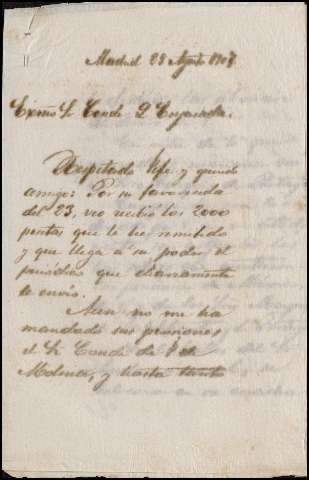 Madrid 28 Agosto 1907
Exmo Sr Conde D
Respetado Jefe y querido
amigo: Por su favorecida
del 23, veo recibió las 2000
pesetas que le he remitido
y que llega a su poder el
que diariamente
le envio.
Aun no me ha
mandado sus pensiones
el Sr Conde de
Molina, y hasta tanto